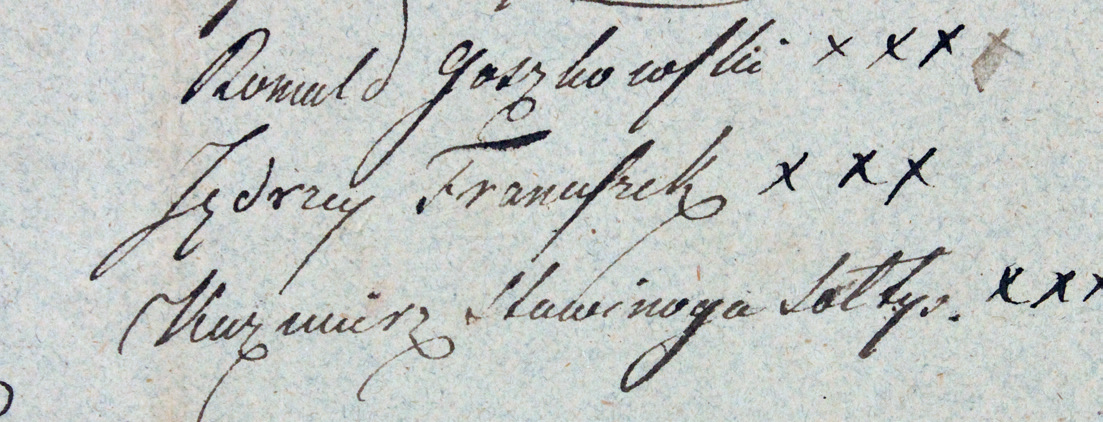 Romuld Goszkowski x x x x
Jędrzey Franuszek x x x
Kazmiirz Stawinoga Sołtys. x x x